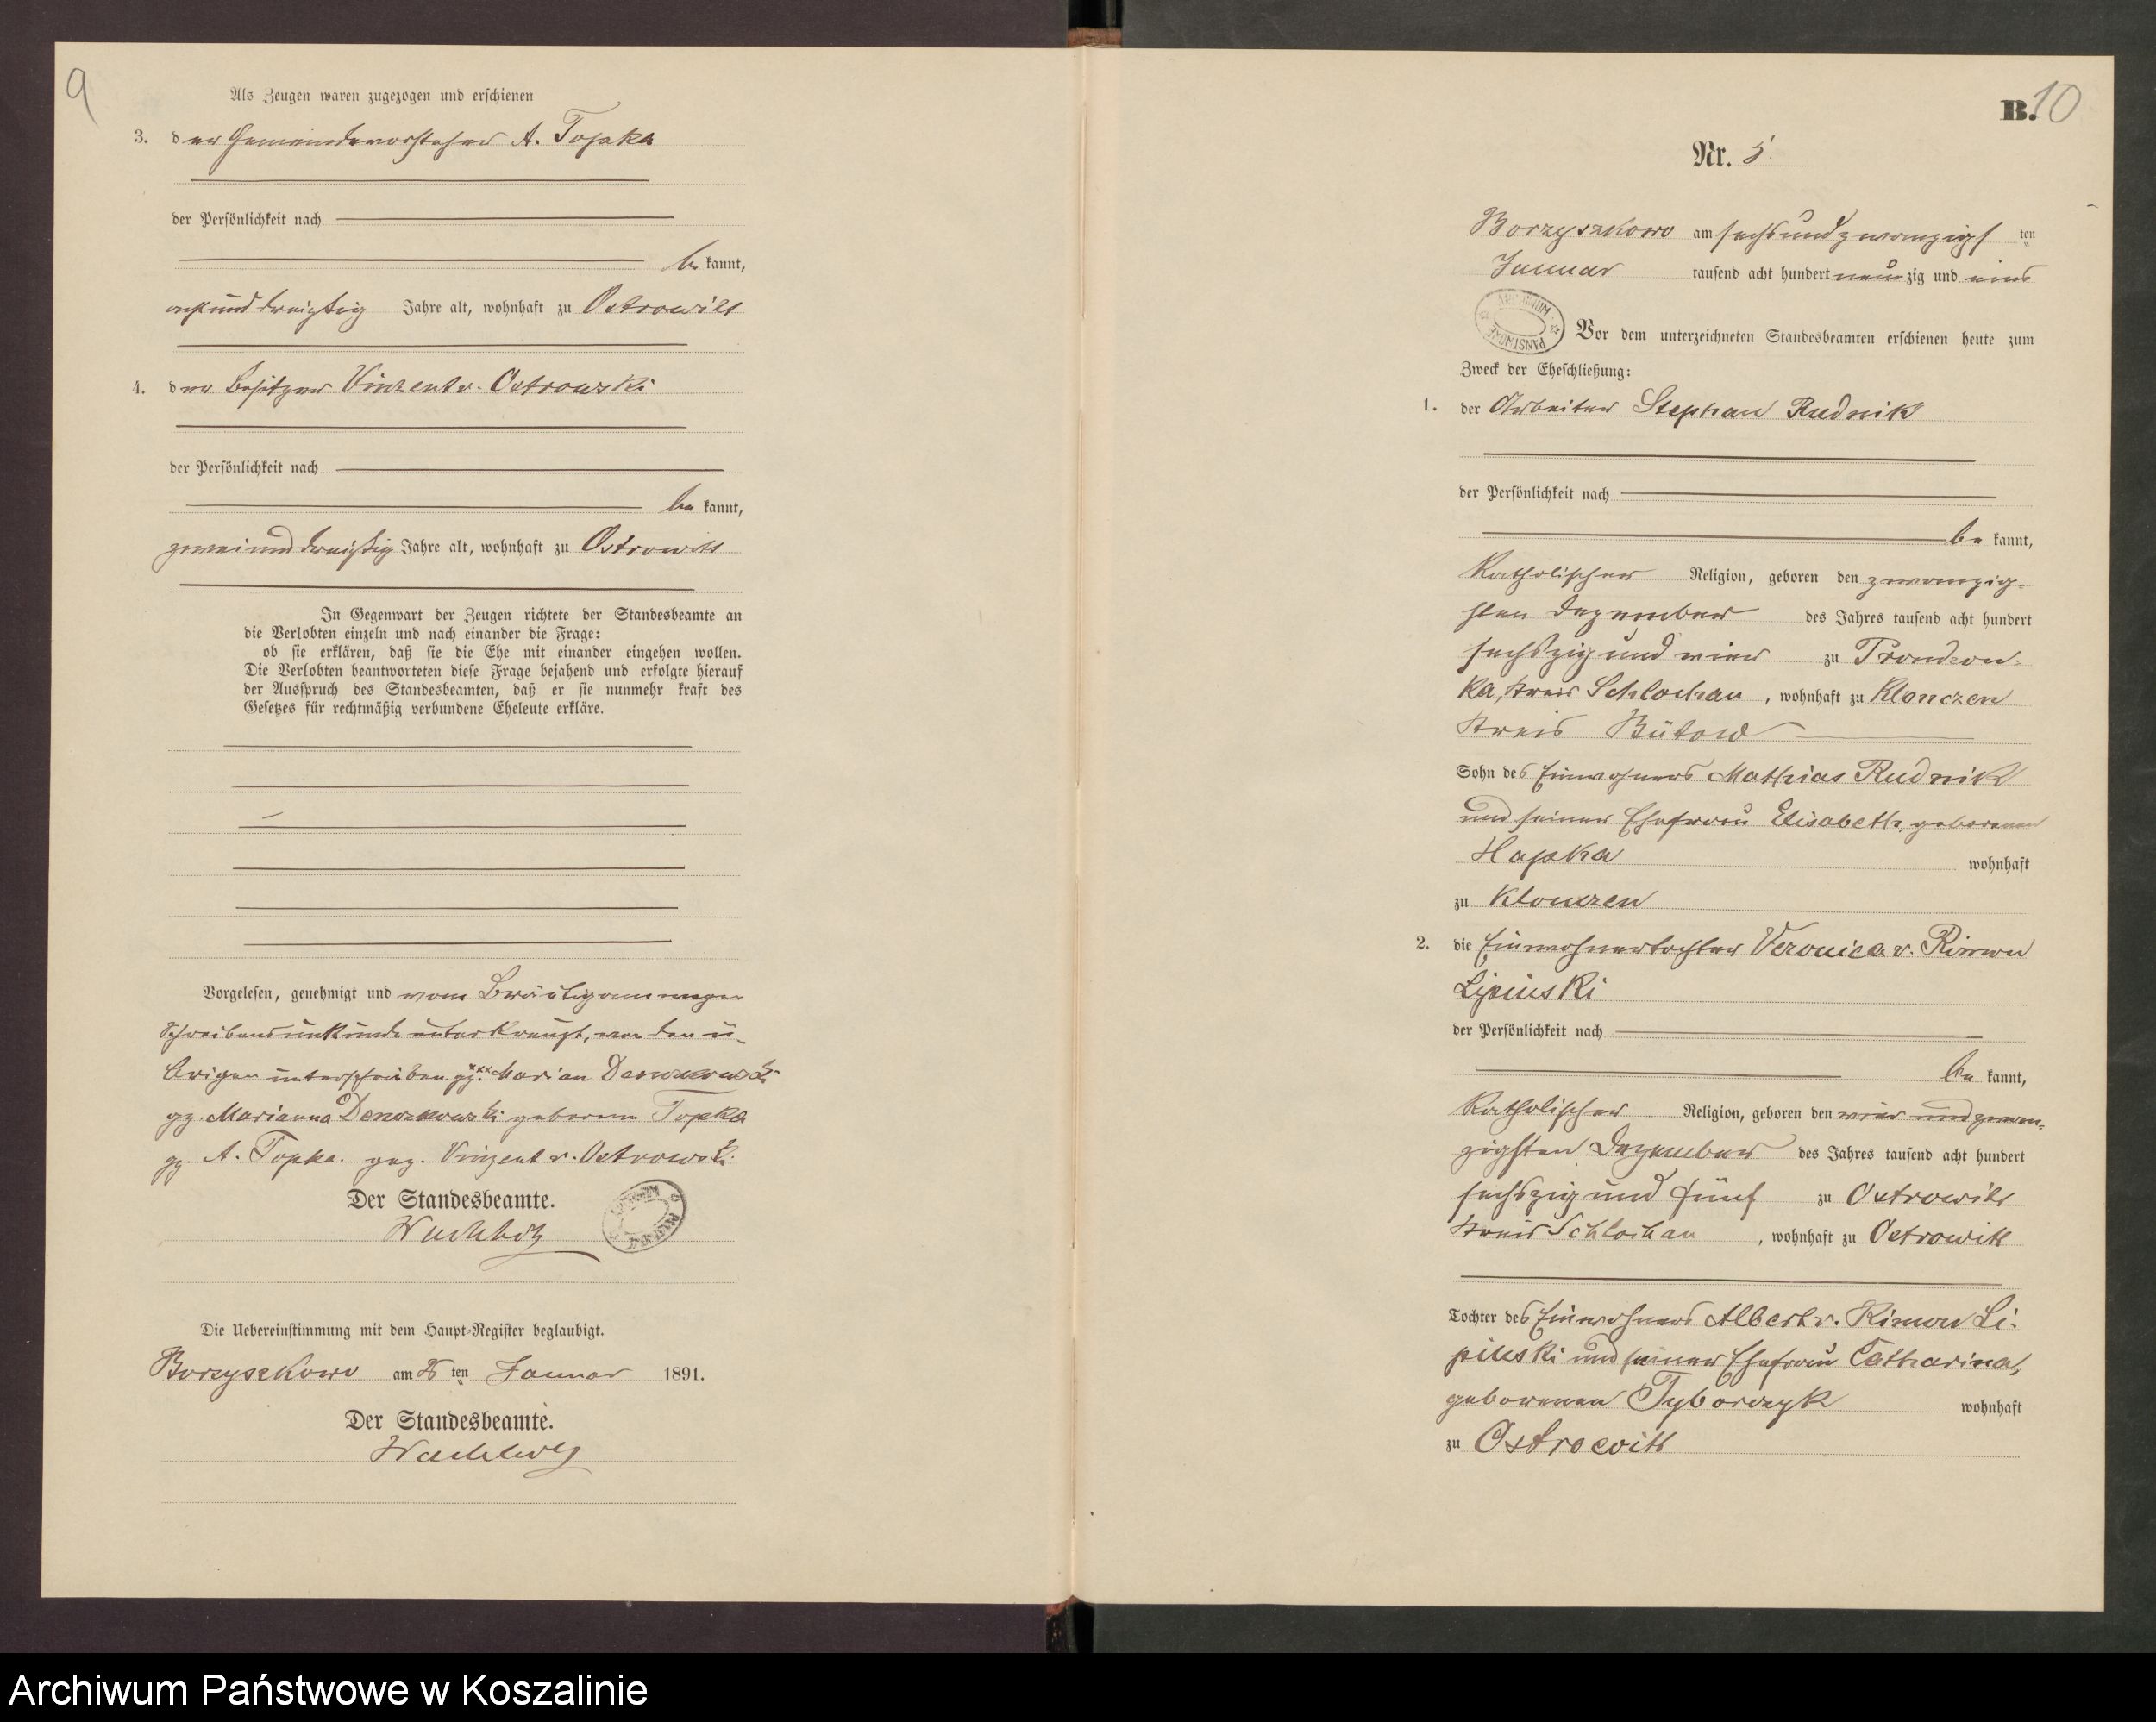 9
Als Zeugen waren zugezogen und erschienen
3. der Gemeindevorsteher A. Topka
der Persönlichkeit nach
be kannt,
acht und dreißig Jahre alt, wohnhaft zu Ostrowitt
4. der Besitzer Vinzent v. Ostrowski
der Persönlichkeit nach
be kannt,
zwei und dreißig Jahre alt, wohnhaft zu Ostrowitt
In Gegenwart der Zeugen richtete der Standesbeamte an
die Verlobten einzeln und nach einander die Frage:
ob sie erklären, daß sie die Ehe mit einander eingehen wollen.
Die Verlobten beantworteten diese Frage bejahend und erfolgte hierauf
der Ausspruch des Standesbeamten, daß er sie nunmehr kraft des
Gesetzes für rechtmäßig verbundene Eheleute erkläre.
Vorgelesen, genehmigt und vom Bräutigam wegen
Schreibensunkunde unterkreuzt, von den ü-
brigen unterschrieben. gz. xxx Marian
gz. Marianna geborene Topka
gz. A. Topka. gez. Vinzent v. Ostrowski
Der Standesbeamte.
Die Uebereinstimmung mit dem Haupt-Register beglaubigt.
Borzyszkowo am 26 ten Januar 1891.
Der Standesbeamte.
B. 10
Nr. 5.
Borzyszkowo am sechs und zwanzigs ten
Januar tausend acht hundert neun zig und eins
ARCHIWUM PAŃSTWOWE
Vor dem unterzeichneten Standesbeamten erschienen heute zum
Zweck der Eheschließung:
1. der Arbeiter Stephan Rudnik
der Persönlichkeit nach
be kannt,
Katholischer Religion, geboren den zwanzig-
sten Dezember des Jahres tausend acht hundert
sechszig und vier zu Prondzon-
ka, Kreis Schlochau, wohnhaft zu Klonczen
Kreis Bütow
Sohn des Einwohners Mathias Rudnik
und seiner Ehefrau Elisabeth, geborenen
Hapka wohnhaft
zu Klonczen
2. die Einwohnertochter Veronica v. Rimon
Lipinski
der Persönlichkeit nach
be kannt,
Katholischer Religion, geboren den vier und zwan-
zigsten Dezember des Jahres tausend acht hundert
sechszig und fünf zu Ostrowitt
Kreis Schlochau, wohnhaft zu Ostrowitt
Tochter des Einwohners Albert v. Rimon Li-
pinski und seiner Ehefrau Catharina,
geborenen Tyborczyk wohnhaft
zu Ostrowitt
Archiwum Państwowe w Koszalinie